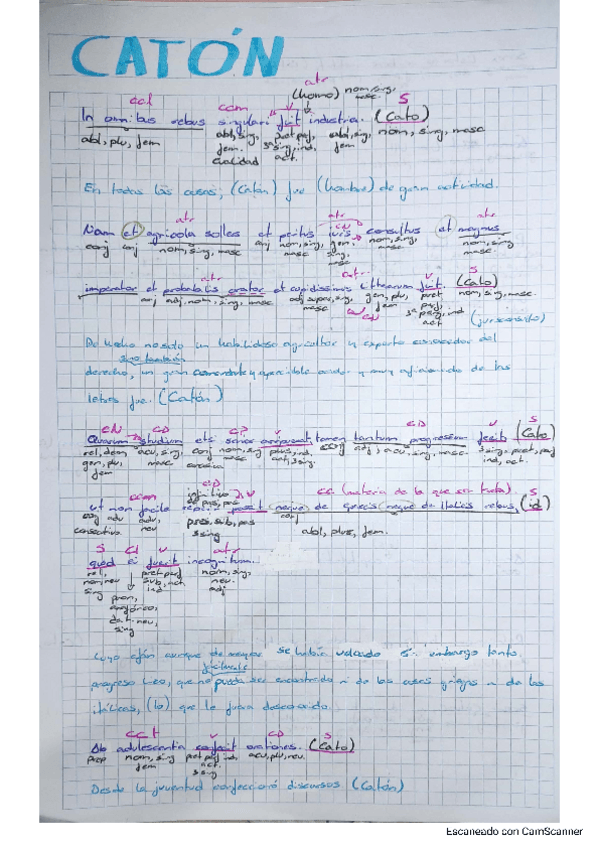 CATÓN
atr
(homo) nom, sing, masc
ccl ccm v S
In omnibus rebus singulari fuit industria. (Cato)
abl, plu, fem abl, sing, fem. cualidad pret perf, 3ª sing, ind, act. abl, sing, fem nom, sing, masc
En todas las cosas, (Catón) fue (hombre) de gran actividad.
atr atr CN atr
Nam et agricola sollers et peritus iuris consultus et magnus
conj conj nom, sing, masc conj nom, sing, masc gen, sing, nom, sing, masc nom, sing, masc
atr atr v S
imperator et probabilis orator et cupidissimus litterarum fuit. (Cato)
conj adj, nom, sing, masc adj super, sing, masc gen, plu, fem pret perf, 3ª sing, ind act nom, sing, masc.
CN
(jurisconsulto)
De hecho no solo un habilidoso agricultor y experto conocedor del
sino también
derecho, un gran comandante y apreciable orador y muy aficionado de las
letras fue. (Catón)
CN CD CP v CD S
Quarum studium etsi senior arripuerat, tamen tantum progressum fecit (Cato)
rel, dem gen, plu, fem acu, sing, masc conj nom, sing, masc plus, ind, act, 3sing. conj adj, acu, sing, masc. 3sing, pret perf, ind, act.
ccm CD v cc (materia de la que se trata) S
ut non facile reperiri possit neque de graecis neque de italicis rebus, (id)
conj consecutiva adv adv, infinitivo de pres, pas pres, sub, pas 3sing conj abl, plus, fem.
S CI v atr
quod ei fuerit incognitum.
rel, nom, neu sing pron, anafórico, dat, neu, sing pret perf sub, act nom, sing, neu. adj
Cuyo afán aunque de mayor se había volcado sin embargo tanto
fácilmente
progreso hizo, que no pueda ser encontrado ni de las cosas griegas ni de las
itálicas, (lo) que le fuera desconocido.
CCT v CD S
Ab adulescentia confecit orationes. (Cato)
prep nom, sing, fem pret perf, ind, act. 3sing acu, plu, neu.
Desde la juventud confeccionó discursos (Catón)
Escaneado con CamScanner